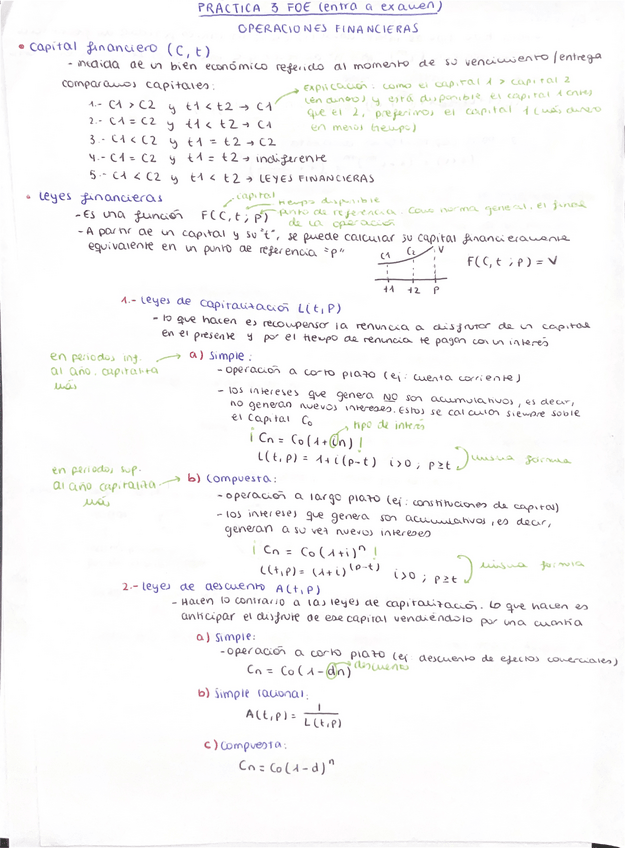 PRACTICA 3 FOE (entra a examen)
OPERACIONES FINANCIERAS
• Capital financiero (C, t)
- medida de un bien económico referido al momento de su vencimiento/entrega
comparamos capitales:
1.- C1 > C2 y t1 < t2 → C1
explicación: como el capital 1 > capital 2
(en dinero) y está disponible el capital 1 antes
que el 2, preferimos el capital 1 (más dinero
en menos tiempo)
2.- C1 = C2 y t1 < t2 → C1
3.- C1 < C2 y t1 = t2 → C2
4.- C1 = C2 y t1 = t2 → indiferente
5.- C1 < C2 y t1 < t2 → LEYES FINANCIERAS
• Leyes financieras
capital
tiempo disponible
- Es una función F(C, t; p)
punto de referencia. Como norma general, el final
de la operación
- A partir de un capital y su "t", se puede calcular su capital financieramente
equivalente en un punto de referencia "p"
C1 C2 V
t1 t2 p
F(C, t; p) = V
1.- Leyes de capitalización L(t, p)
- lo que hacen es recompensar la renuncia a disfrutar de un capital
en el presente y por el tiempo de renuncia te pagan con un interés
en periodos inf.
al año, capitaliza
más
a) Simple:
- operación a corto plazo (ej: cuenta corriente)
- los intereses que genera NO son acumulativos, es decir,
no generan nuevos intereses. Estos se calculan siempre sobre
el capital C0
tipo de interés
¡ Cn = C0 (1 + in) !
L(t, p) = 1 + i(p-t) i>0; p≥t
misma fórmula
en periodos sup.
al año capitaliza
más
b) Compuesta:
- operación a largo plazo (ej: constituciones de capital)
- los intereses que genera son acumulativos, es decir,
generan a su vez nuevos intereses
¡ Cn = C0 (1+i)^n !
L(t, p) = (1+i)^(p-t) i>0; p≥t
misma fórmula
2.- Leyes de descuento A(t, p)
- Hacen lo contrario a las leyes de capitalización. Lo que hacen es
anticipar el disfrute de ese capital vendiéndolo por una cuantía
a) Simple:
- operación a corto plazo (ej descuento de efectos comerciales)
Cn = C0 (1 - dn) descuento
b) Simple racional:
A(t, p) = 1 / L(t, p)
c) Compuesta:
Cn = C0 (1-d)^n